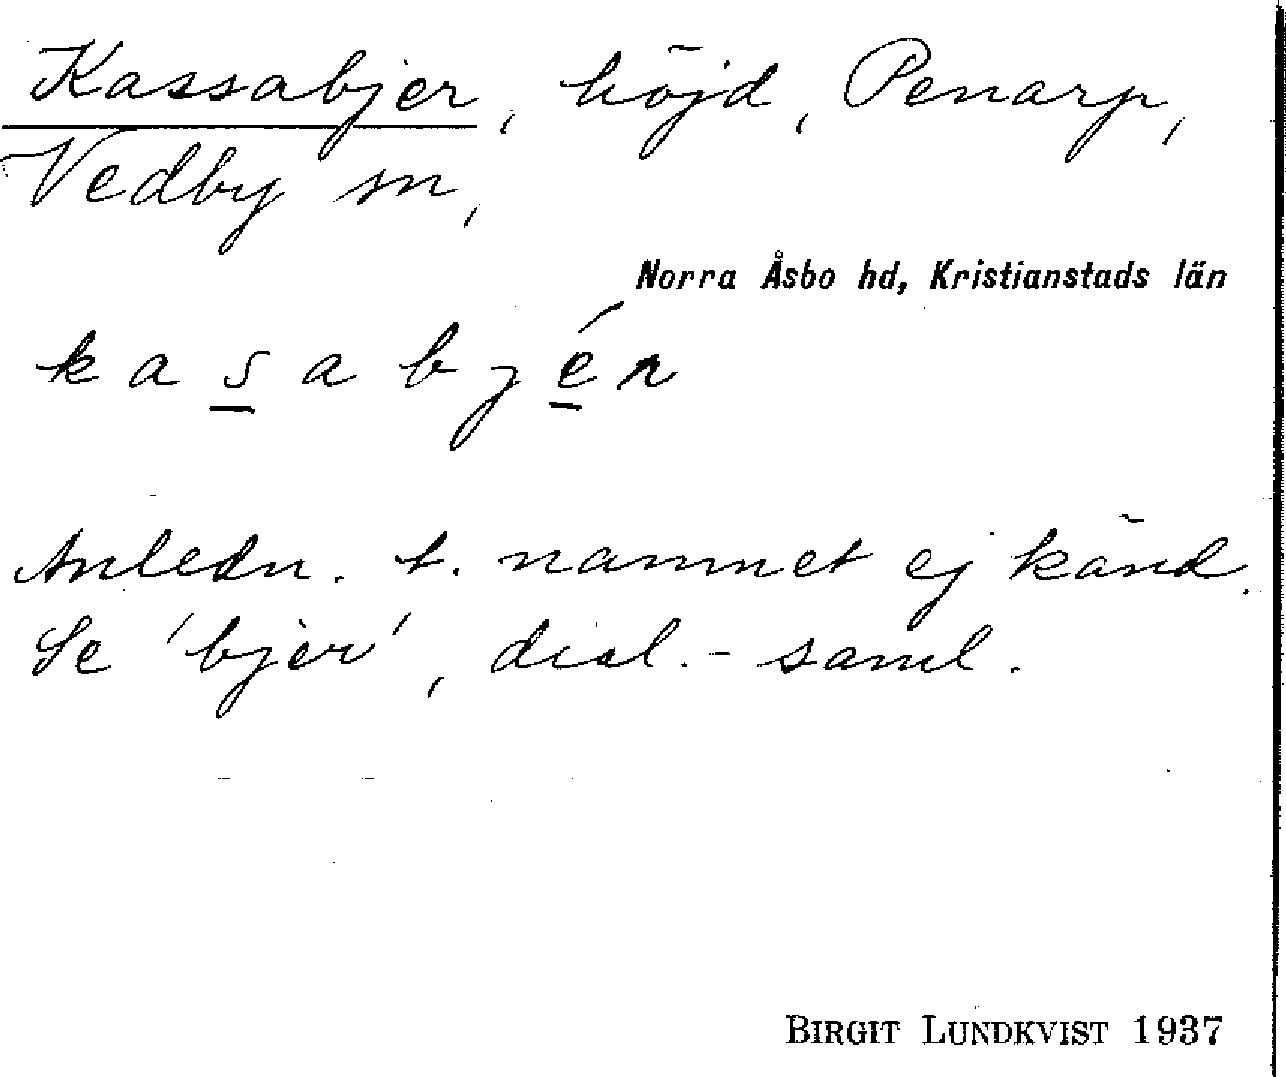 Kassabjer, höjd, Penarp,
Vedby sn,
Norra Åsbo hd, Kristianstads län
k a s a b j é r
Anledn. t. namnet ej känd.
Se 'bjer', dial.-saml.
BIRGIT LUNDKVIST 1937